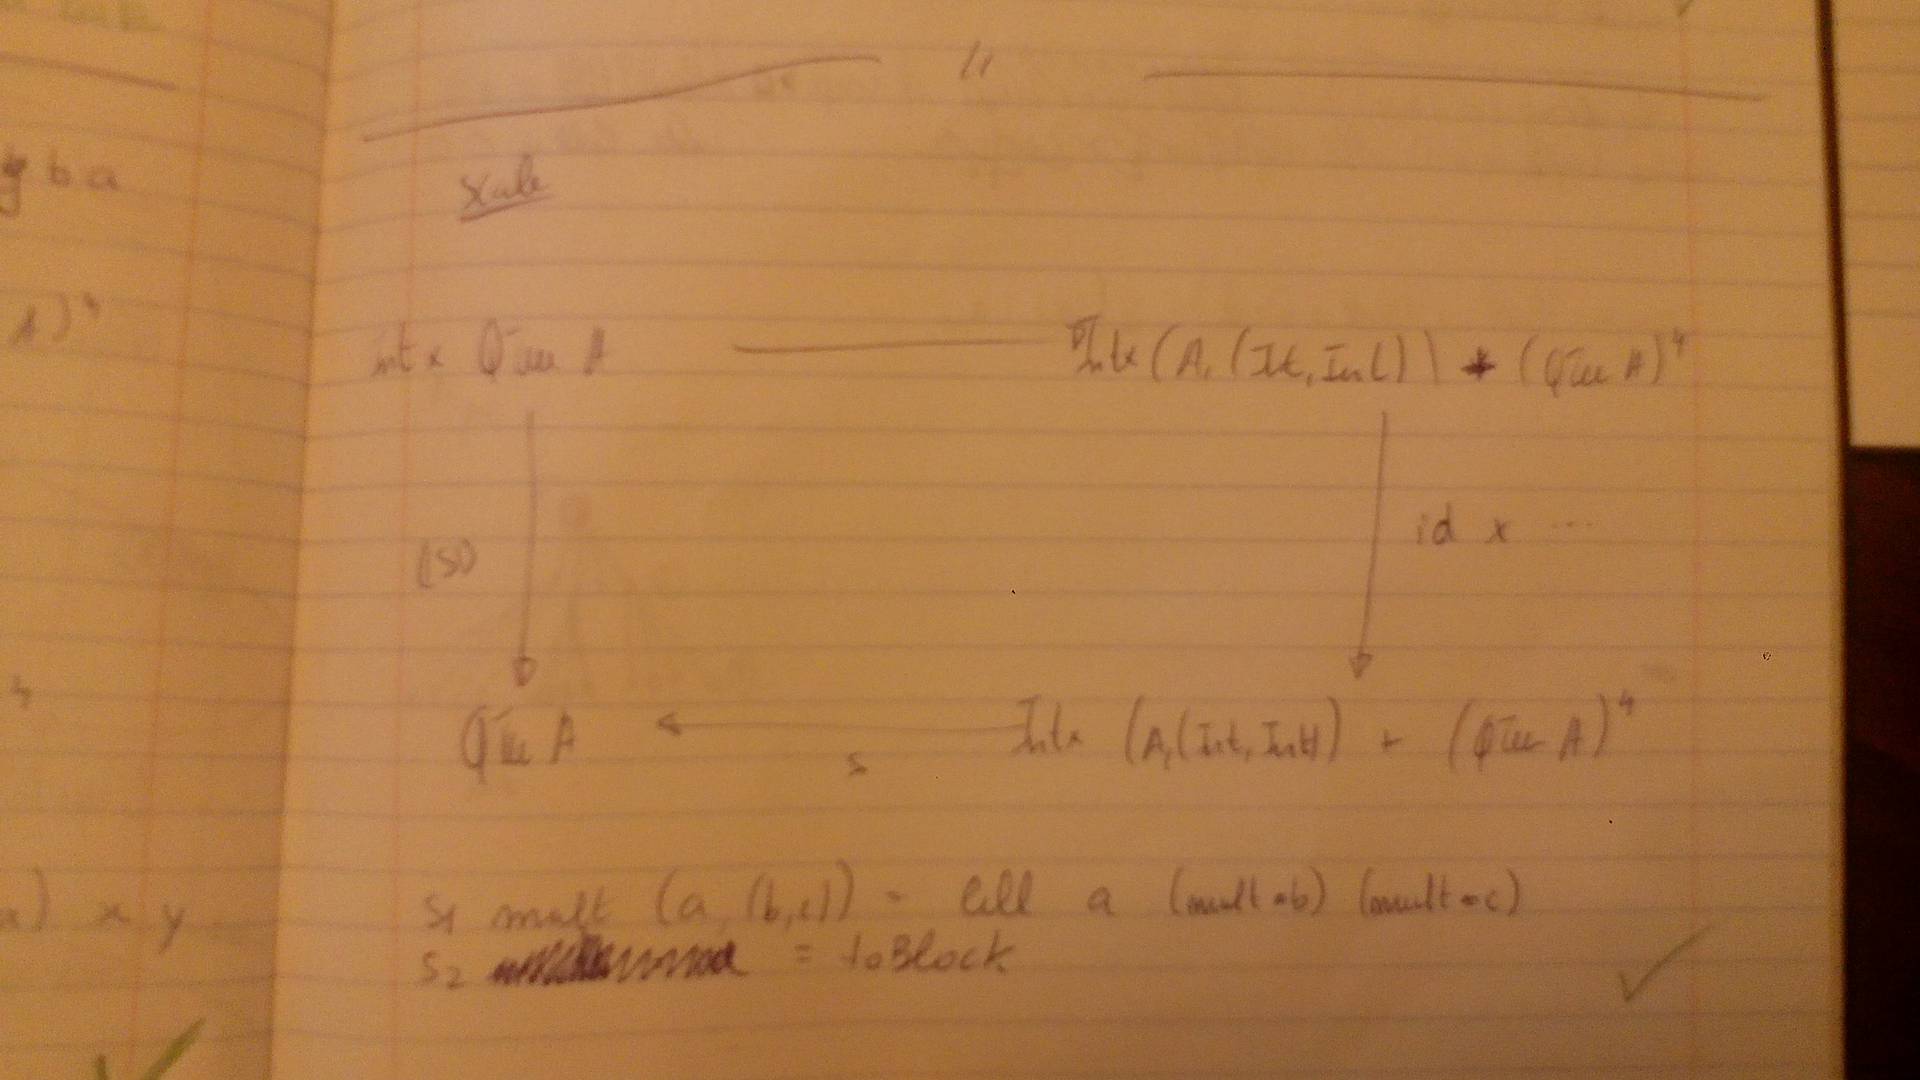 g b a
1)⁴
4
a) x y
//
Scale
Int x QTree A
Int x (A, (Int, Int)) + (QTree A)⁴
(S)
id x ...
QTree A
s
Int x (A, (Int, Int)) + (QTree A)⁴
S1 mult (a, (b,c)) = Cell a (mult * b) (mult * c)
S2 = toBlock